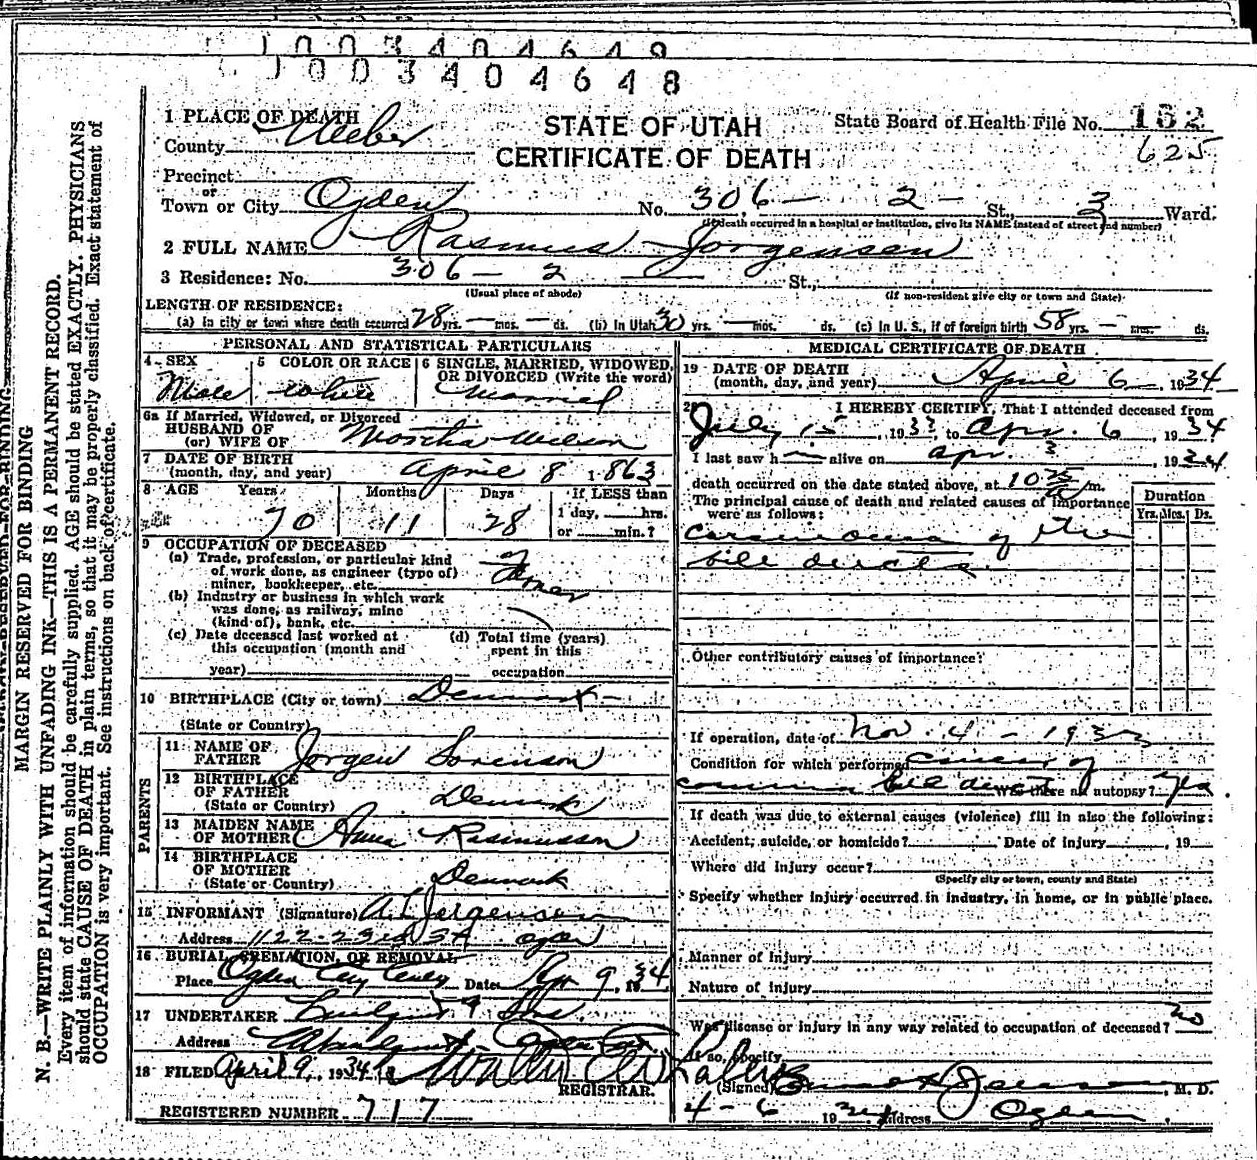 1003404648
1003404648
1 PLACE OF DEATH
County Weber
STATE OF UTAH
CERTIFICATE OF DEATH
State Board of Health File No. 162
625
Precinct
or
Town or City Ogden No. 306 — 2 — St., 3 Ward.
(If death occurred in a hospital or institution, give its NAME instead of street and number)
2 FULL NAME Rasmus Jorgensen
3 Residence: No. 306 — 2 St.,
(Usual place of abode) (If non-resident give city or town and State)
LENGTH OF RESIDENCE:
(a) In city or town where death occurred 28 yrs. — mos. — ds. (b) In Utah 30 yrs. — mos. ds. (c) In U. S., if of foreign birth 58 yrs. — mos. ds.
PERSONAL AND STATISTICAL PARTICULARS
4 SEX Male
5 COLOR OR RACE White
6 SINGLE, MARRIED, WIDOWED, OR DIVORCED (Write the word) Married
6a If Married, Widowed, or Divorced
HUSBAND OF
(or) WIFE OF Martha
7 DATE OF BIRTH
(month, day, and year) April 8 1863
8 AGE Years 70 Months 11 Days 28 If LESS than
1 day, hrs.
or min.?
9 OCCUPATION OF DECEASED
(a) Trade, profession, or particular kind
of work done, as engineer (type of)
miner, bookkeeper, etc.
(b) Industry or business in which work
was done, as railway, mine
(kind of), bank, etc.
(c) Date deceased last worked at
this occupation (month and
year)
(d) Total time (years)
spent in this
occupation
10 BIRTHPLACE (City or town) Denmark
(State or Country)
PARENTS
11 NAME OF
FATHER Jorgen Sorenson
12 BIRTHPLACE
OF FATHER
(State or Country) Denmark
13 MAIDEN NAME
OF MOTHER Anna Rasmusson
14 BIRTHPLACE
OF MOTHER
(State or Country) Denmark
15 INFORMANT (Signature) A. L. Jorgensen
Address 1122 - 23rd St Ogden
16 BURIAL, CREMATION, OR REMOVAL
Place Ogden City Cemty Date Apr 9, 1934
17 UNDERTAKER Lindquist & Sons
Address
18 FILED April 9, 1934
REGISTRAR.
REGISTERED NUMBER 717
MEDICAL CERTIFICATE OF DEATH
19 DATE OF DEATH
(month, day, and year) April 6 — , 1934
20 I HEREBY CERTIFY, That I attended deceased from
July 15, 1933, to Apr. 6, 1934
I last saw h alive on Apr. 3, 1934
death occurred on the date stated above, at 10 m.
The principal cause of death and related causes of importance
were as follows:
Duration
Yrs. Mos. Ds.
Carcinoma of the
bile ducts
Other contributory causes of importance:
If operation, date of Nov. 4 — 1933
Condition for which performed cancer of
common bile duct Was there an autopsy? yes.
If death was due to external causes (violence) fill in also the following:
Accident, suicide, or homicide? Date of injury , 19
Where did injury occur?
(Specify city or town, county and State)
Specify whether injury occurred in industry, in home, or in public place.
Manner of Injury
Nature of Injury
Was disease or injury in any way related to occupation of deceased? no
If so, specify
(Signed) , M. D.
4 - 6 1934 Address Ogden
MARGIN RESERVED FOR BINDING
N. B.—WRITE PLAINLY WITH UNFADING INK—THIS IS A PERMANENT RECORD.
Every item of information should be carefully supplied. AGE should be stated EXACTLY. PHYSICIANS
should state CAUSE OF DEATH in plain terms, so that it may be properly classified. Exact statement of
OCCUPATION is very important. See instructions on back of certificate.